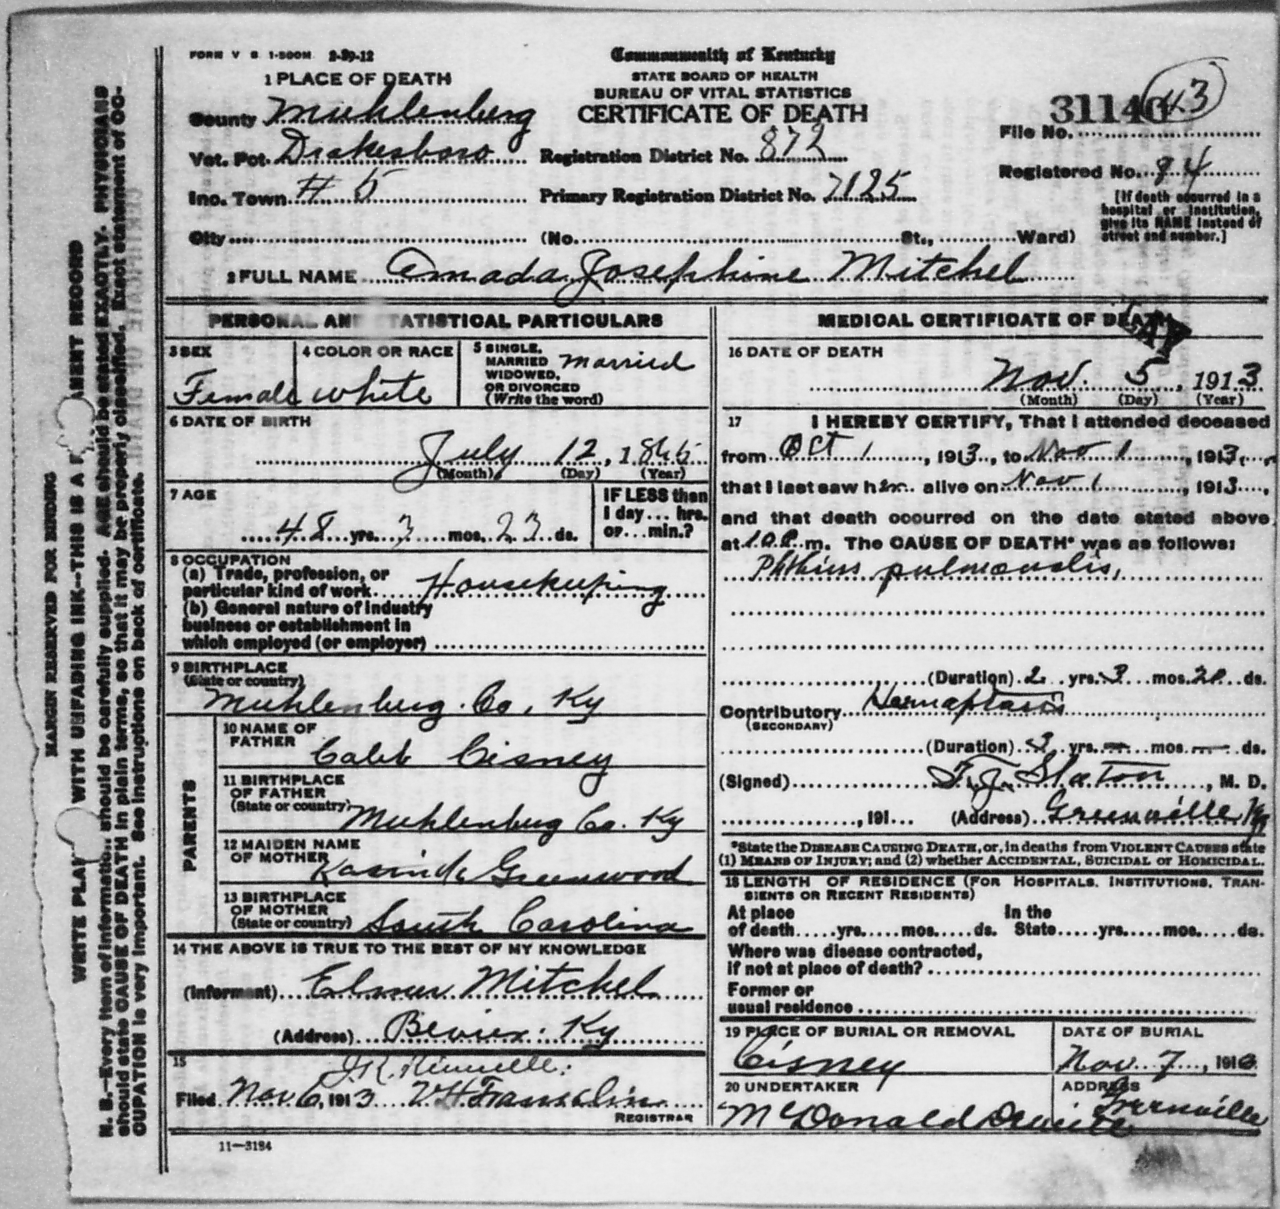 FORM V S 1-500M 2-29-12
Commonwealth of Kentucky
STATE BOARD OF HEALTH
BUREAU OF VITAL STATISTICS
CERTIFICATE OF DEATH
1 PLACE OF DEATH
County Muhlenberg
Vot. Pct. Drakesboro
Inc. Town # 5
City (No. St., Ward)
Registration District No. 872
Primary Registration District No. 7125
31146
43
File No.
Registered No. 94
[If death occurred in a
hospital or institution,
give its NAME instead of
street and number.]
2 FULL NAME Amada Josephine Mitchel
PERSONAL AND STATISTICAL PARTICULARS
3 SEX
Female
4 COLOR OR RACE
white
5 SINGLE,
MARRIED
WIDOWED,
OR DIVORCED
(Write the word)
married
6 DATE OF BIRTH
July 12, 1865
(Month) (Day) (Year)
7 AGE
48 yrs. 3 mos. 23 ds.
IF LESS than
1 day... hrs.
or... min.?
8 OCCUPATION
(a) Trade, profession, or
particular kind of work Housekeeping
(b) General nature of industry
business or establishment in
which employed (or employer)
9 BIRTHPLACE
(State or country)
Muhlenberg. Co, Ky
PARENTS
10 NAME OF
FATHER
Caleb Cisney
11 BIRTHPLACE
OF FATHER
(State or country)
Muhlenburg Co. Ky
12 MAIDEN NAME
OF MOTHER
Greenwood
13 BIRTHPLACE
OF MOTHER
(State or country) South Carolina
14 THE ABOVE IS TRUE TO THE BEST OF MY KNOWLEDGE
(Informant) Elmer Mitchel
(Address) Bevier. Ky
15
J.R.
Filed Nov 6, 1913 V H Franklin
REGISTRAR
11—3184
MEDICAL CERTIFICATE OF DEATH
16 DATE OF DEATH
Nov. 5, 1913
(Month) (Day) (Year)
17 I HEREBY CERTIFY, That I attended deceased
from Oct 1, 1913, to Nov 1, 1913,
that I last saw her alive on Nov 1, 1913,
and that death occurred on the date stated above,
at 10 P m. The CAUSE OF DEATH* was as follows:
Phthisis pulmonalis,
(Duration) 2 yrs. 3 mos. 20 ds.
Contributory
(SECONDARY)
(Duration) 2 yrs. — mos. — ds.
(Signed) T.J. Slaton, M. D.
, 191 (Address) Greenville Ky
*State the DISEASE CAUSING DEATH, or, in deaths from VIOLENT CAUSES state
(1) MEANS OF INJURY; and (2) whether ACCIDENTAL, SUICIDAL OR HOMICIDAL.
18 LENGTH OF RESIDENCE (FOR HOSPITALS, INSTITUTIONS, TRAN-
SIENTS OR RECENT RESIDENTS)
At place
of death yrs. mos. ds.
In the
State yrs. mos. ds.
Where was disease contracted,
If not at place of death?
Former or
usual residence
19 PLACE OF BURIAL OR REMOVAL
Cisney
DATE OF BURIAL
Nov 7, 1913
20 UNDERTAKER
McDonald
ADDRESS
Greenville
MARGIN RESERVED FOR BINDING
WRITE PLAI WITH UNFADING INK—THIS IS A P ANENT RECORD
N. B.—Every item of information should be carefully supplied. AGE should be stated EXACTLY. PHYSICIANS
should state CAUSE OF DEATH in plain terms, so that it may be properly classified. Exact statement of OC-
CUPATION is very important. See instructions on back of certificate.